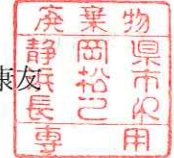 康友
廃棄物
静岡県
浜松市
長之印
専用